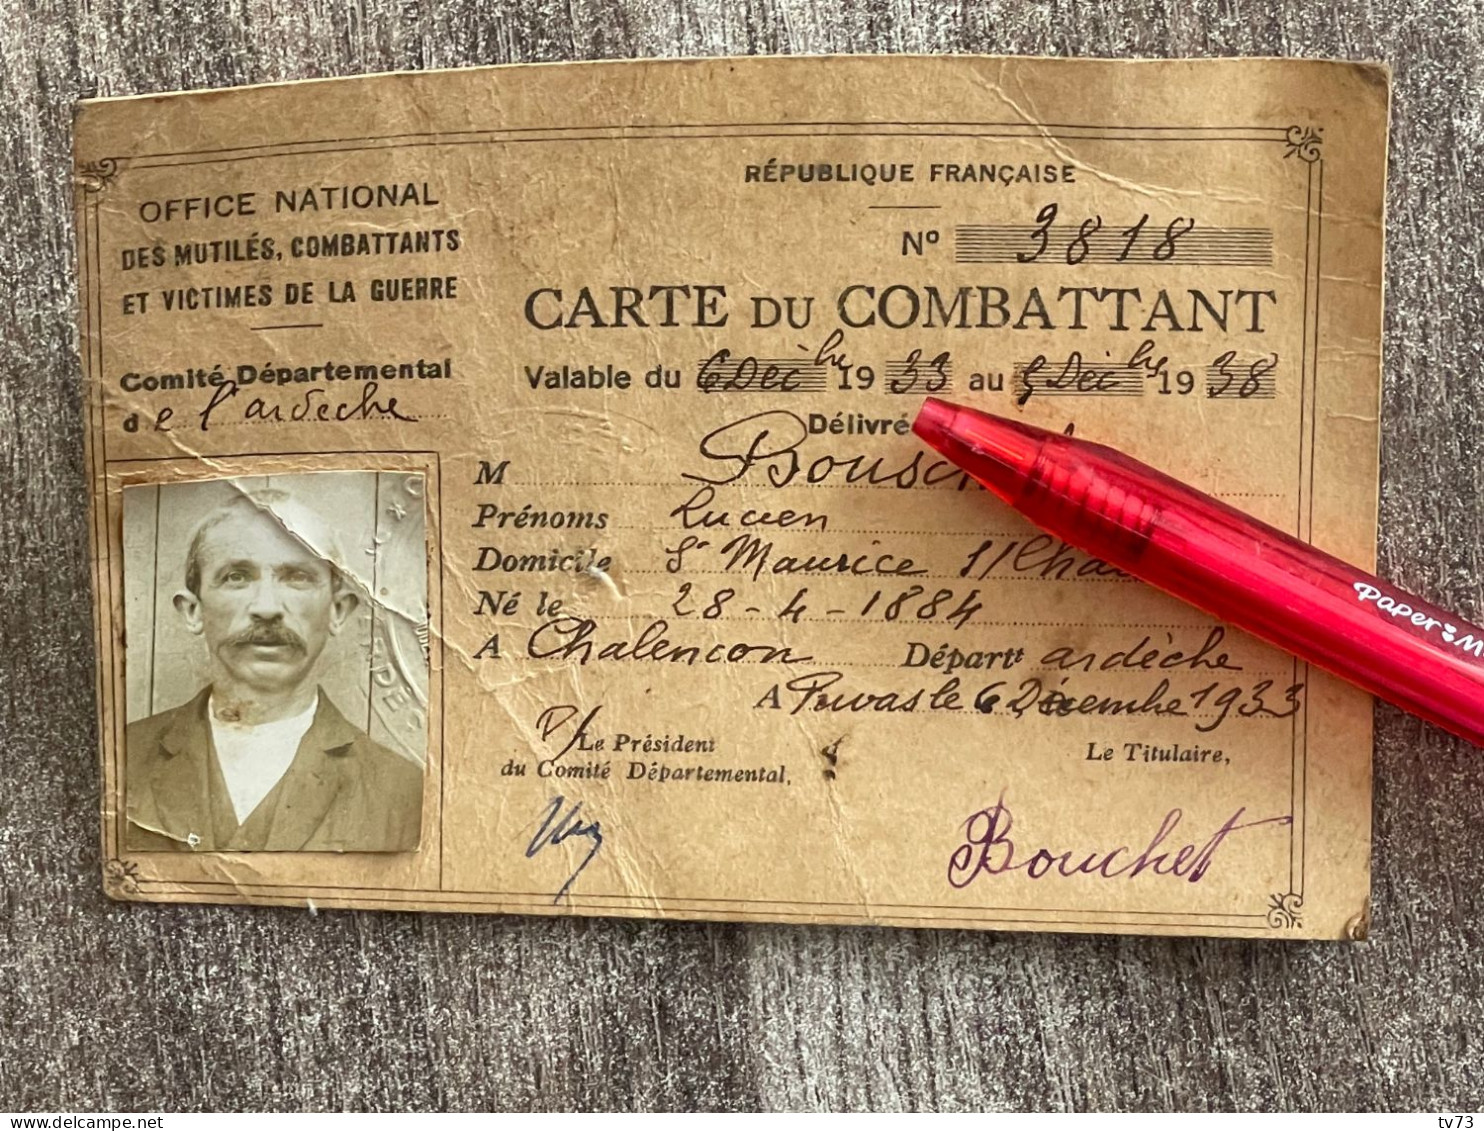 OFFICE NATIONAL
DES MUTILÉS, COMBATTANTS
ET VICTIMES DE LA GUERRE
Comité Départemental
de l'ardèche
RÉPUBLIQUE FRANÇAISE
Nº 3818
CARTE DU COMBATTANT
Valable du 6 Déc bre 1933 au 5 Déc bre 1938
Délivré
M Bousch
Prénoms Lucien
Domicile St Maurice s/ Cha
Né le 28-4-1884
A Chalencon Départt ardèche
A Privas le 6 Décembre 1933
P/Le Président
du Comité Départemental,
Le Titulaire,
Bouchet
Paper M
tv73